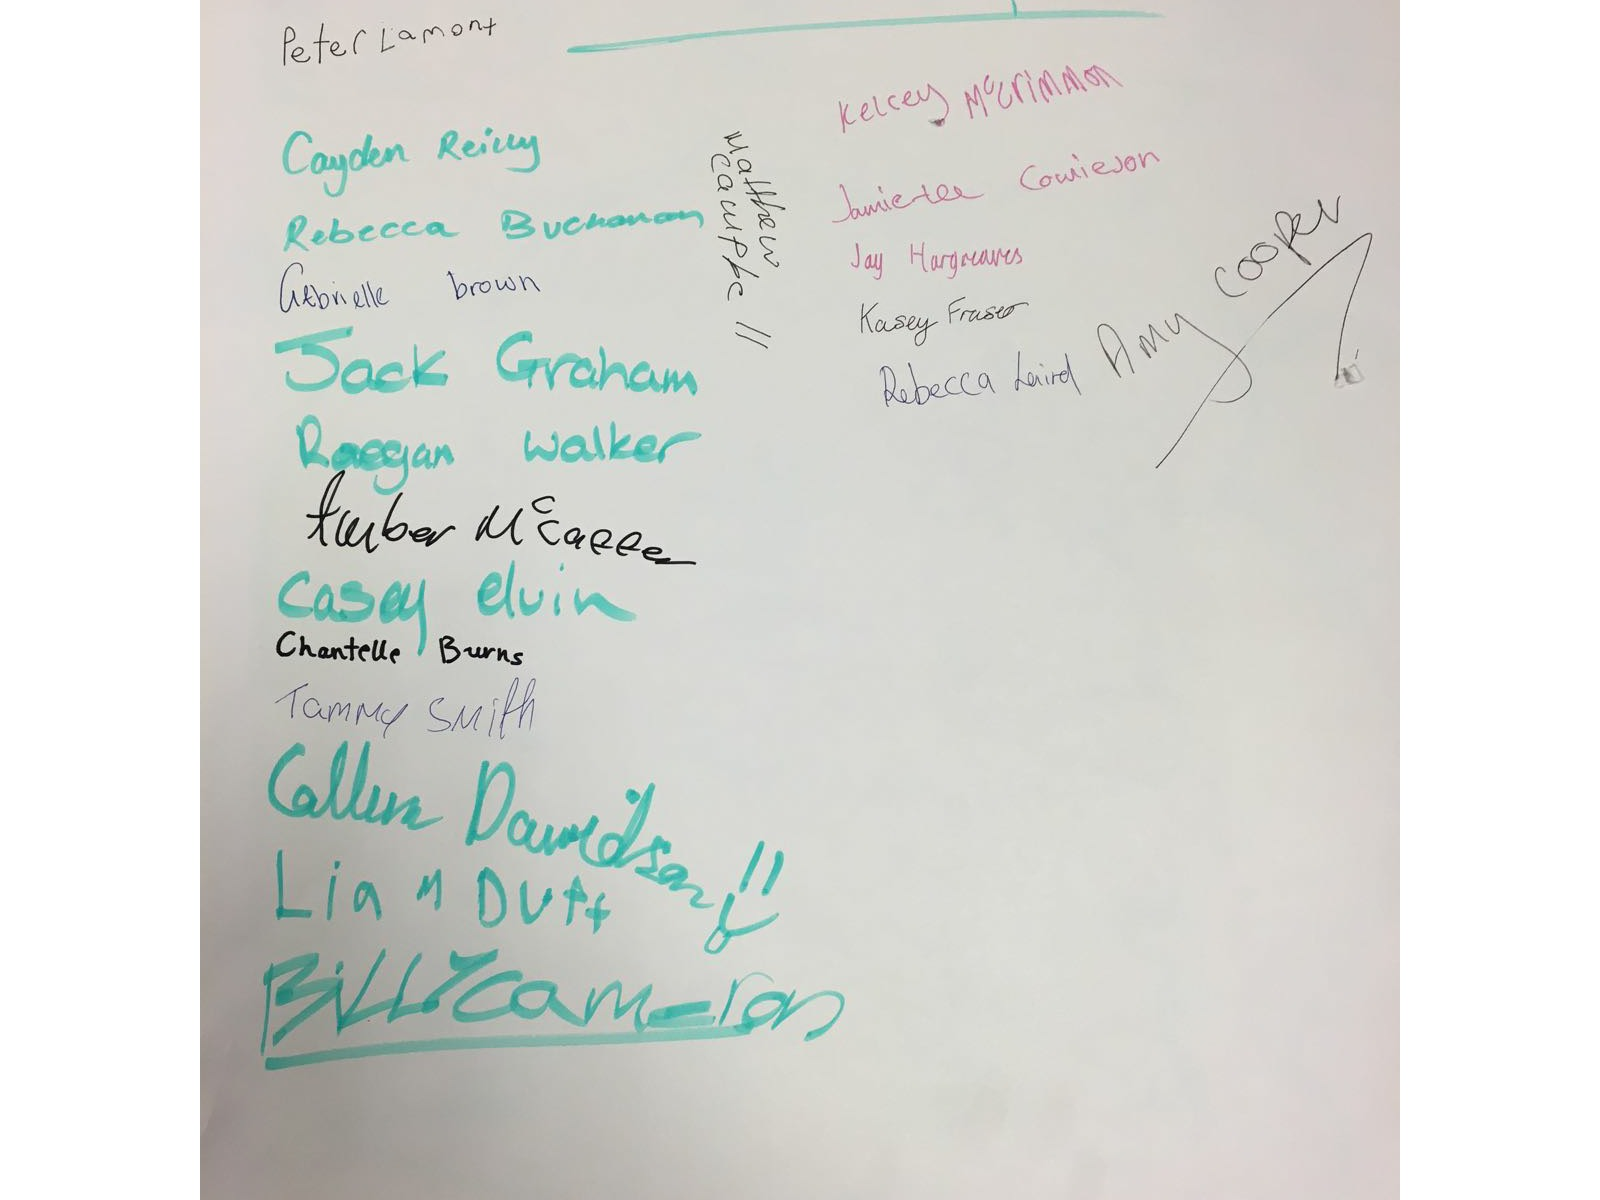 Peter Lamont
Cayden Reilly
Rebecca Buchanan
Gabrielle brown
Jack Graham
Raegan Walker
Amber McCaffer
Casey elvin
Chantelle Burns
Tammy Smith
Callum Davidson !!
Liam Dutt
BILLY cameron
Matthew
Campbell
Kelsey McCrimmon
Jamie-Lee
Jay Hargreaves
Kasey Fraser
Rebecca Laird
Amy Cooper